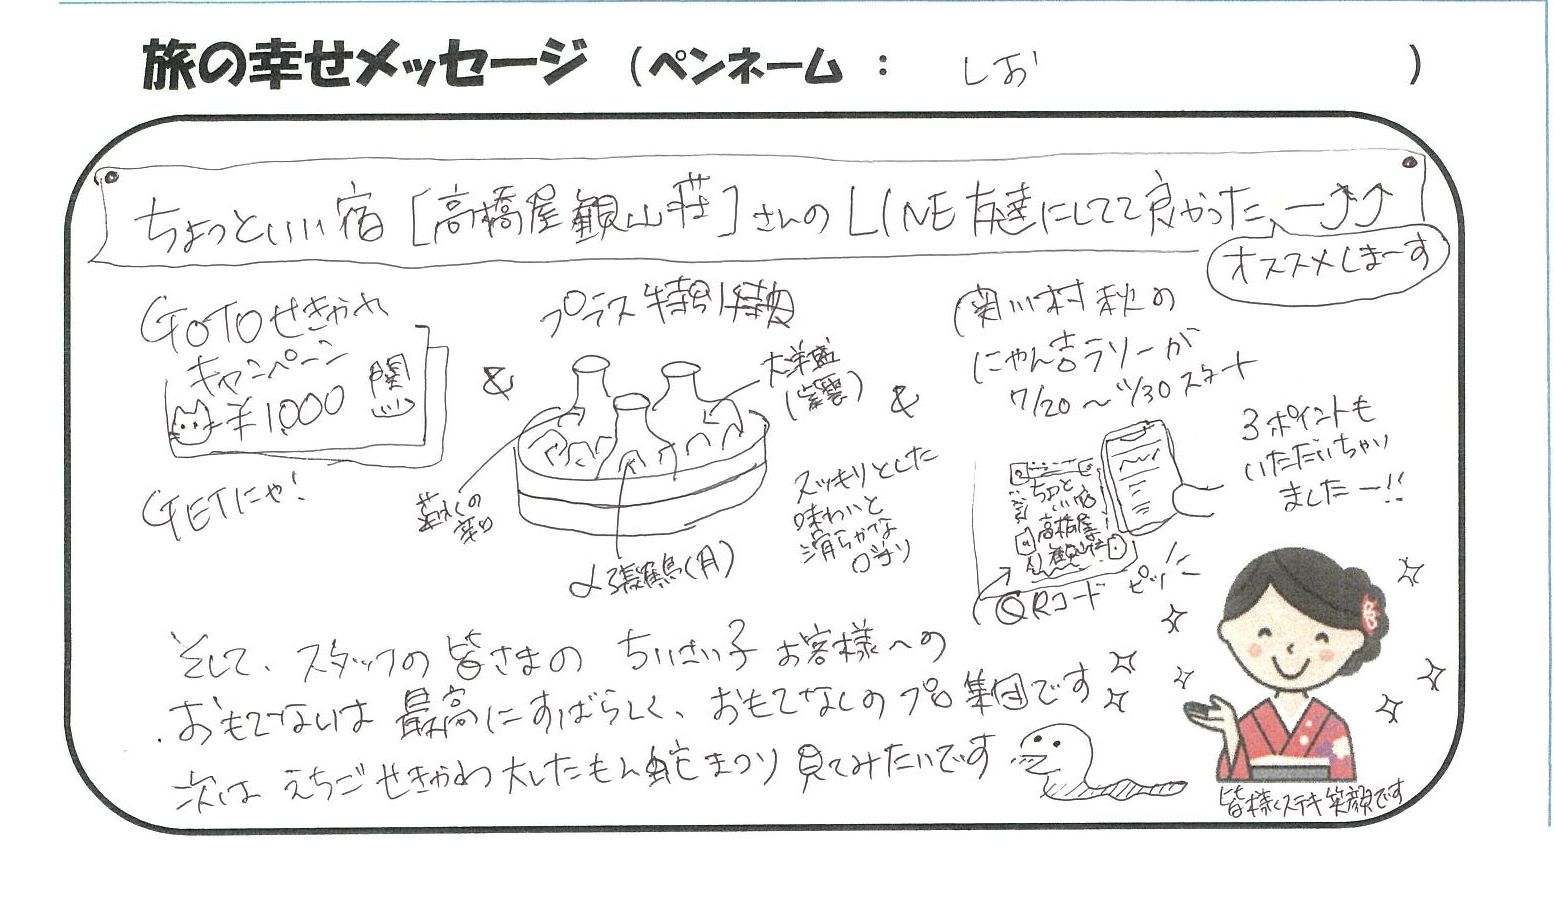 旅の幸せメッセージ (ペンネーム : しお )
ちょっといい宿[高橋屋観山荘]さんのLINE友達にしてて良かったー
オススメしまーす
GOTOせきかわ
キャンペーン
¥1,000 関
GETにゃ!
&
プラス特別特段
大洋盛
(紫雲)
辛口
〆張鶴(月)
スッキリとした
味わいと
滑らかな
口当り
&
関川村秋の
にゃん吉ラリーが
7/20〜11/30スタート
3ポイントも
いただいちゃい
ましたー!!
ちょっと
いい宿
高橋屋
観山荘
QRコード ピッ
そして、スタッフの皆さまの ちいさい子 お客様への
おもてないは 最高にすばらしく、おもてなしのプロ集団です
次は えちごせきかわ 大したもん蛇まつり 見てみたいです
皆様ステキ笑顔です